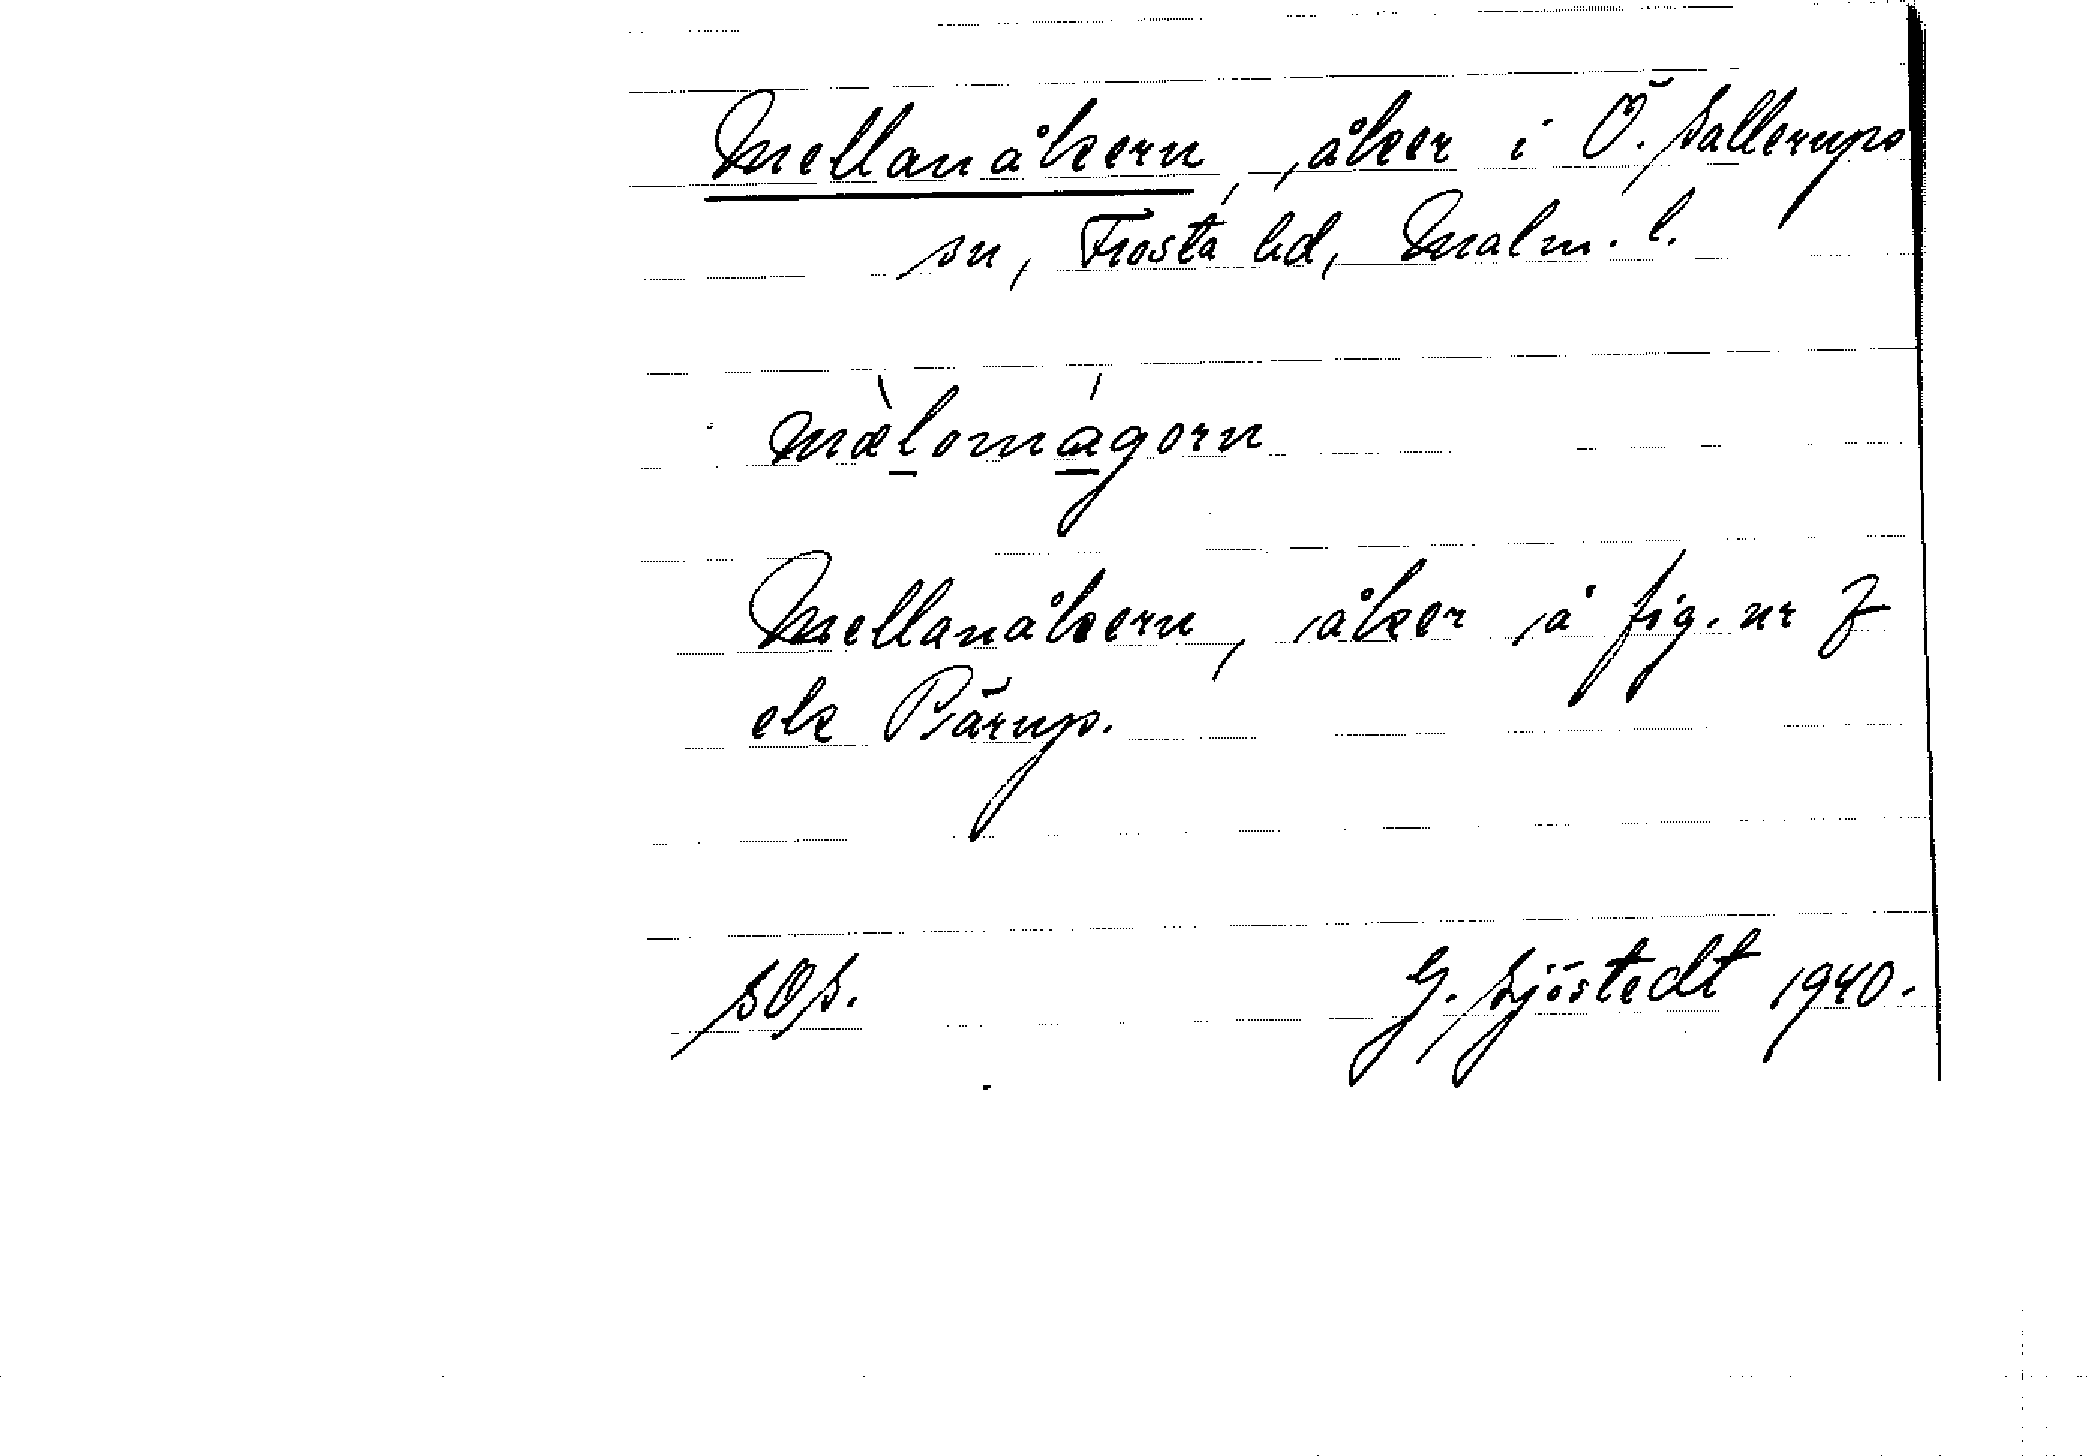 Mellanåkern, åker i Ö. Sallerups
sn, Frosta hd, Malm. l.
mæ̀lomágorn
Mellanåkern, åker å fig. nr 7
ek Pärup.
SOS.
G. Sjöstedt 1940.